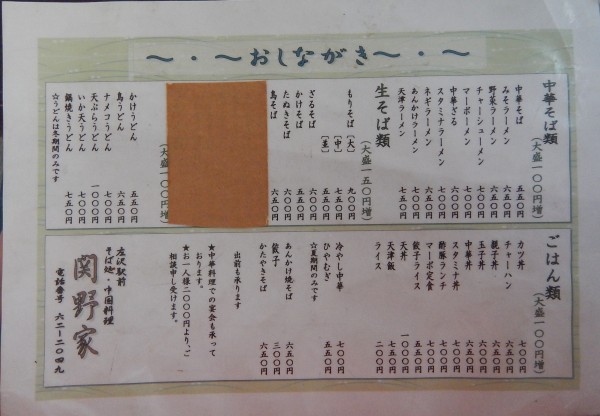 〜・〜おしながき〜・〜
中華そば類（大盛一〇〇円増）
中華そば 五五〇円
みそラーメン 六五〇円
野菜ラーメン 六五〇円
チャーシューメン
マーボーメン
中華ざる
スタミナラーメン
ネギラーメン
あんかけラーメン
天津ラーメン 七五〇円
生そば類（大盛一五〇円増）
もりそば［大］ 九〇〇円
［中］ 七五〇円
［並］ 五五〇円
ざるそば 六五〇円
かけそば 五五〇円
たぬきそば 六〇〇円
鳥そば 六五〇円
（大盛一〇〇円増）
かけうどん 五五〇円
鳥うどん 六五〇円
ナメコうどん 七五〇円
天ぷらうどん 一〇〇〇円
いか天うどん 七五〇円
鍋焼きうどん 七五〇円
☆うどんは冬期間のみです
ごはん類（大盛一〇〇円増）
カツ丼 七〇〇円
チャーハン
親子丼
玉子丼
中華丼
スタミナ丼
酢豚ランチ
マーボ定食
餃子ライス
天丼 一〇〇〇円
天津飯
ライス 二〇〇円
冷やし中華 七〇〇円
ひやむぎ 五五〇円
☆夏期間のみです
あんかけ焼そば 六五〇円
餃子 三〇〇円
かたやきそば 六五〇円
出前も承ります
★中華料理での宴会も承って
おります。
★お一人様二〇〇〇円より、ご
相談申し受けます。
左沢駅前
そば処・中国料理
関野家
電話番号 六二ー二〇四九